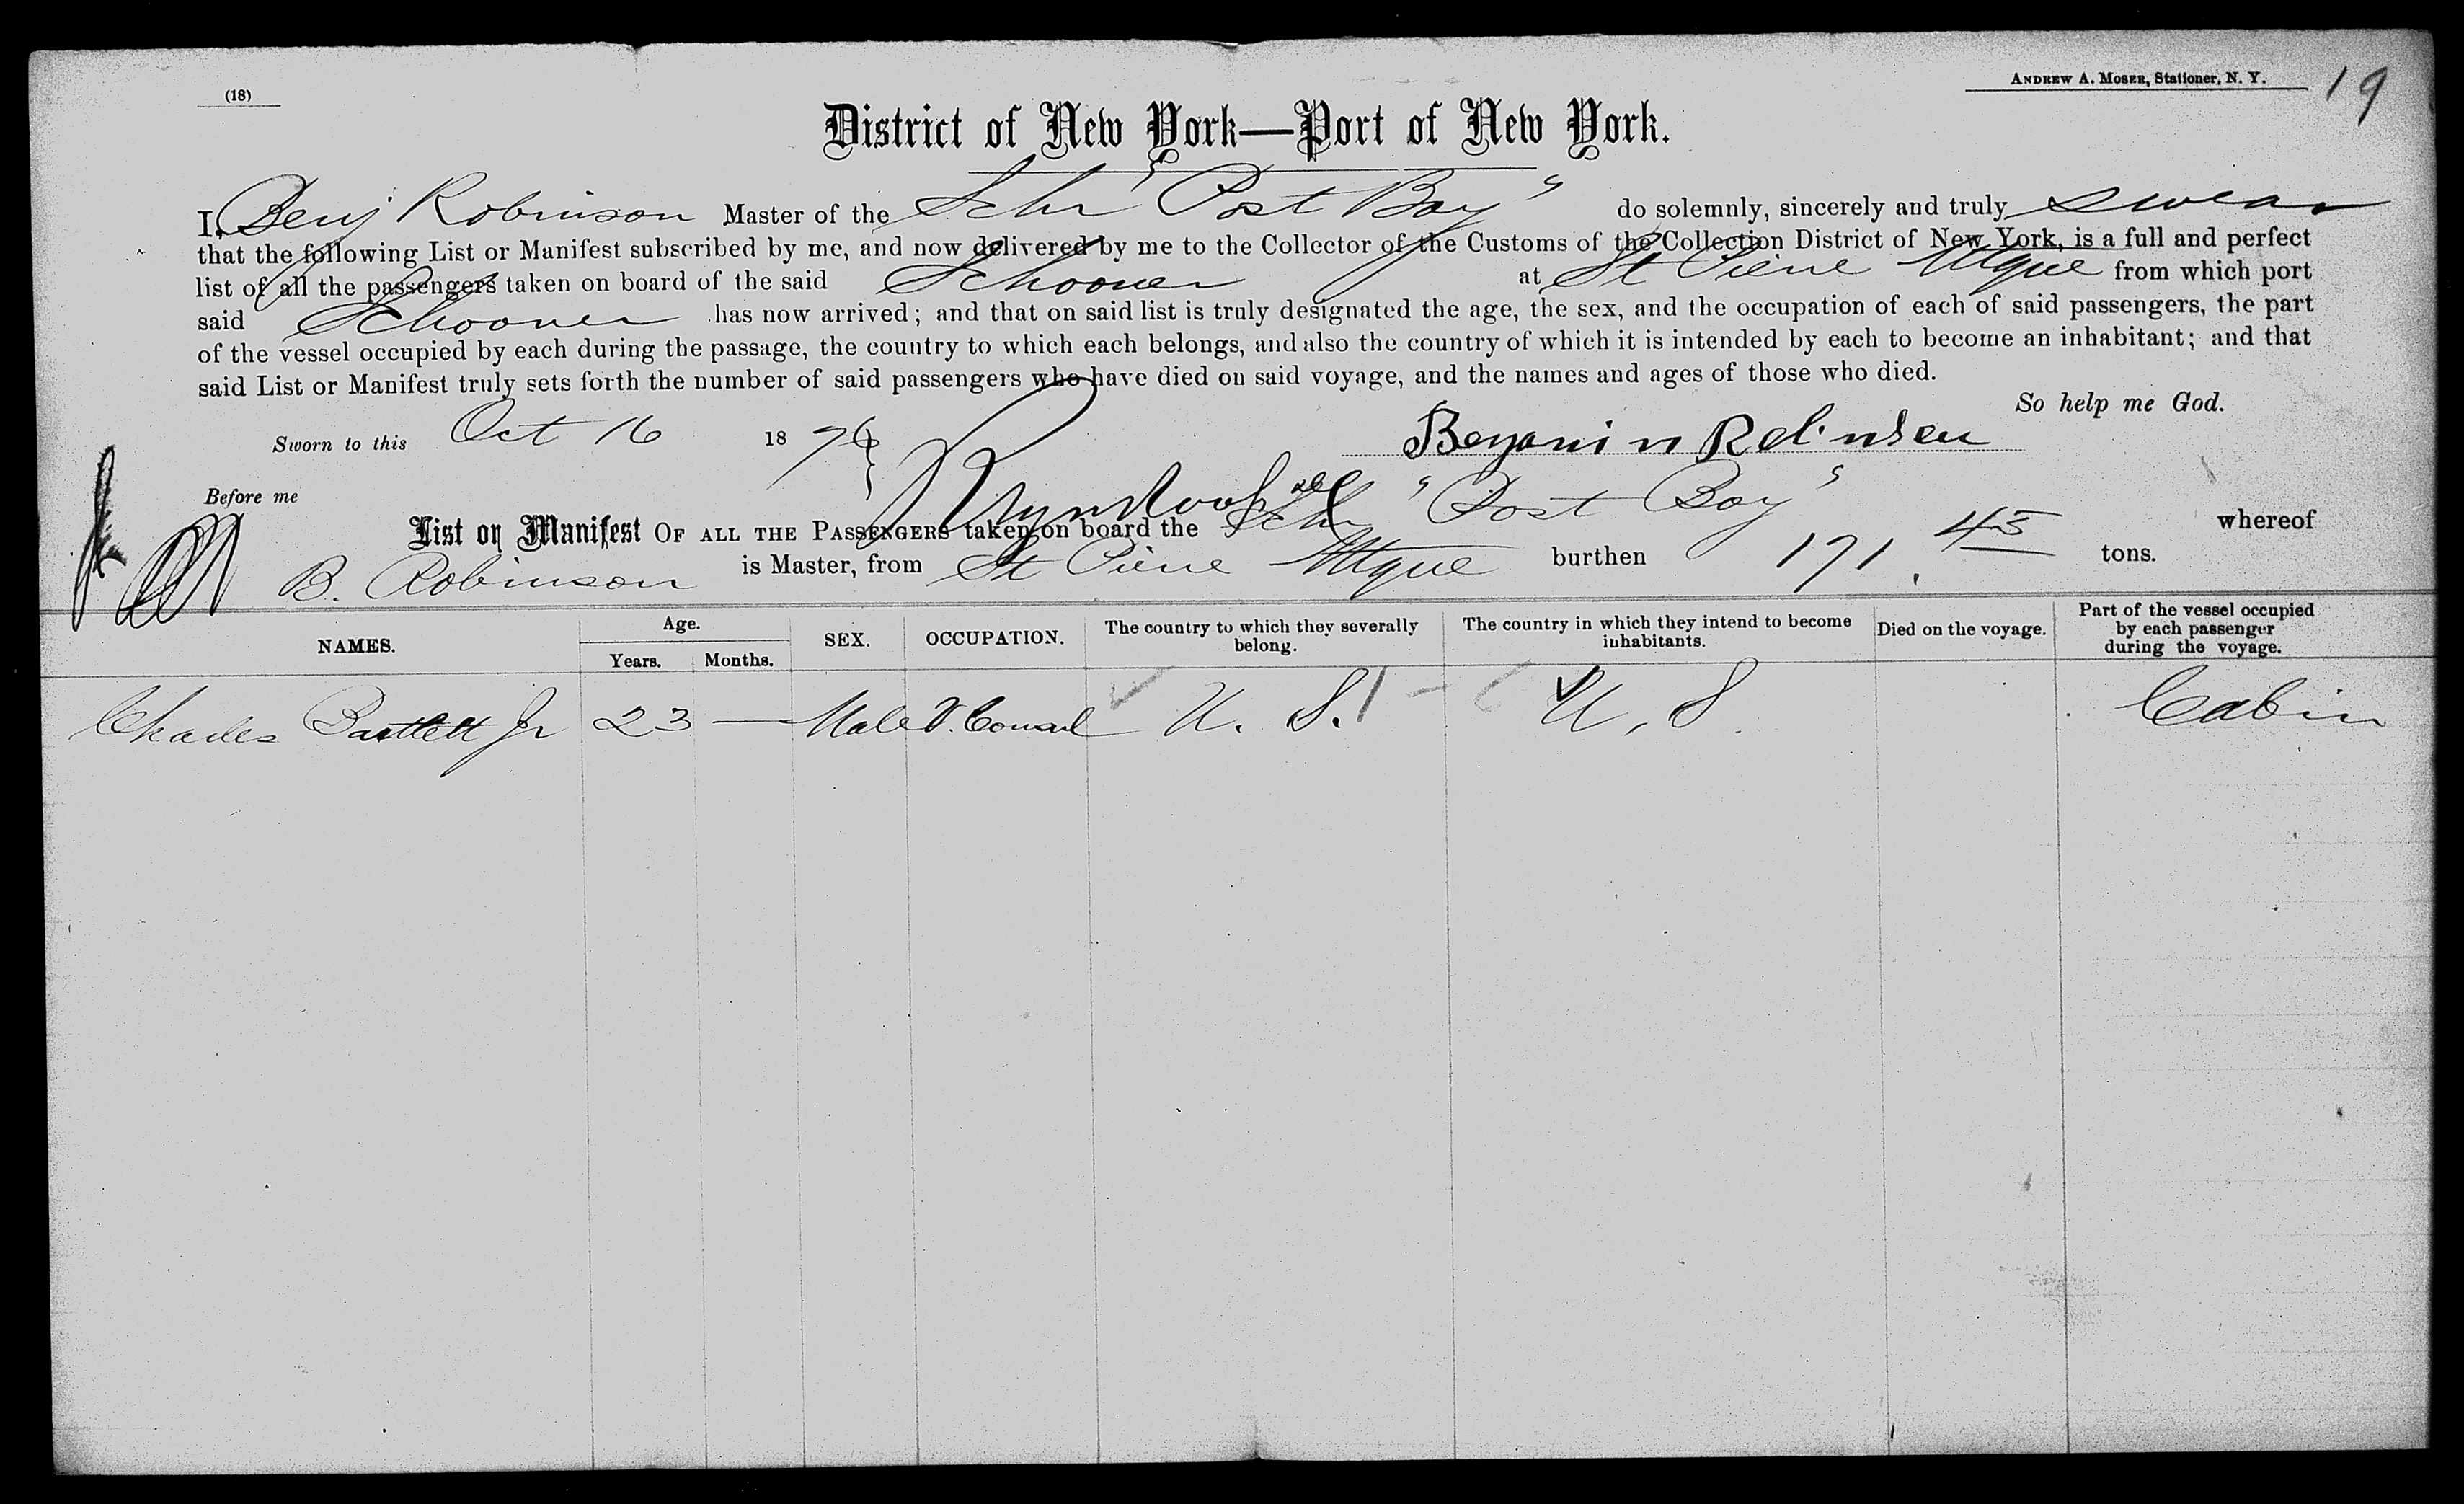 (18)
ANDREW A. MOSER, Stationer, N. Y.
19
District of New York—Port of New York.
I, Benj Robinson Master of the Schr "Post Boy" do solemnly, sincerely and truly swear
that the following List or Manifest subscribed by me, and now delivered by me to the Collector of the Customs of the Collection District of New York, is a full and perfect
list of all the passengers taken on board of the said Schooner at St Piere Mque from which port
said Schooner has now arrived; and that on said list is truly designated the age, the sex, and the occupation of each of said passengers, the part
of the vessel occupied by each during the passage, the country to which each belongs, and also the country of which it is intended by each to become an inhabitant; and that
said List or Manifest truly sets forth the number of said passengers who have died on said voyage, and the names and ages of those who died.
So help me God.
Sworn to this Oct 16 1876
Benjamin Robinson
Before me
List or Manifest OF ALL THE PASSENGERS taken on board the Schr "Post Boy" whereof
B. Robinson is Master, from St Piere Mque burthen 171. 45 tons.
NAMES. Age. Years. Months. SEX. OCCUPATION. The country to which they severally belong. The country in which they intend to become inhabitants. Died on the voyage. Part of the vessel occupied by each passenger during the voyage.
Charles Bartlett Jr 23 — Male V. Consul U. S. U. S. Cabin